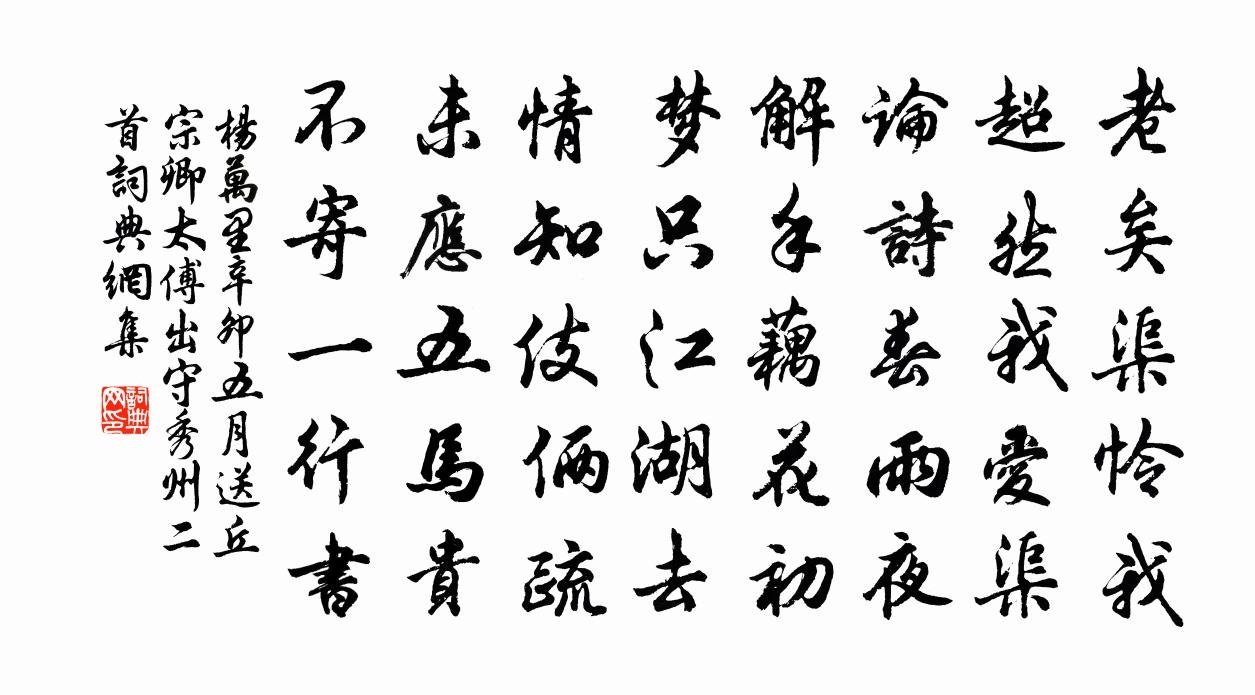 老矣渠怜我
超然我愛渠
論詩春雨夜
解手藕花初
梦只江湖去
情知伎倆疏
未應五馬貴
不寄一行書
楊萬里辛卯五月送丘
宗卿太傅出守秀州二
首詞典網集
詞典
网印